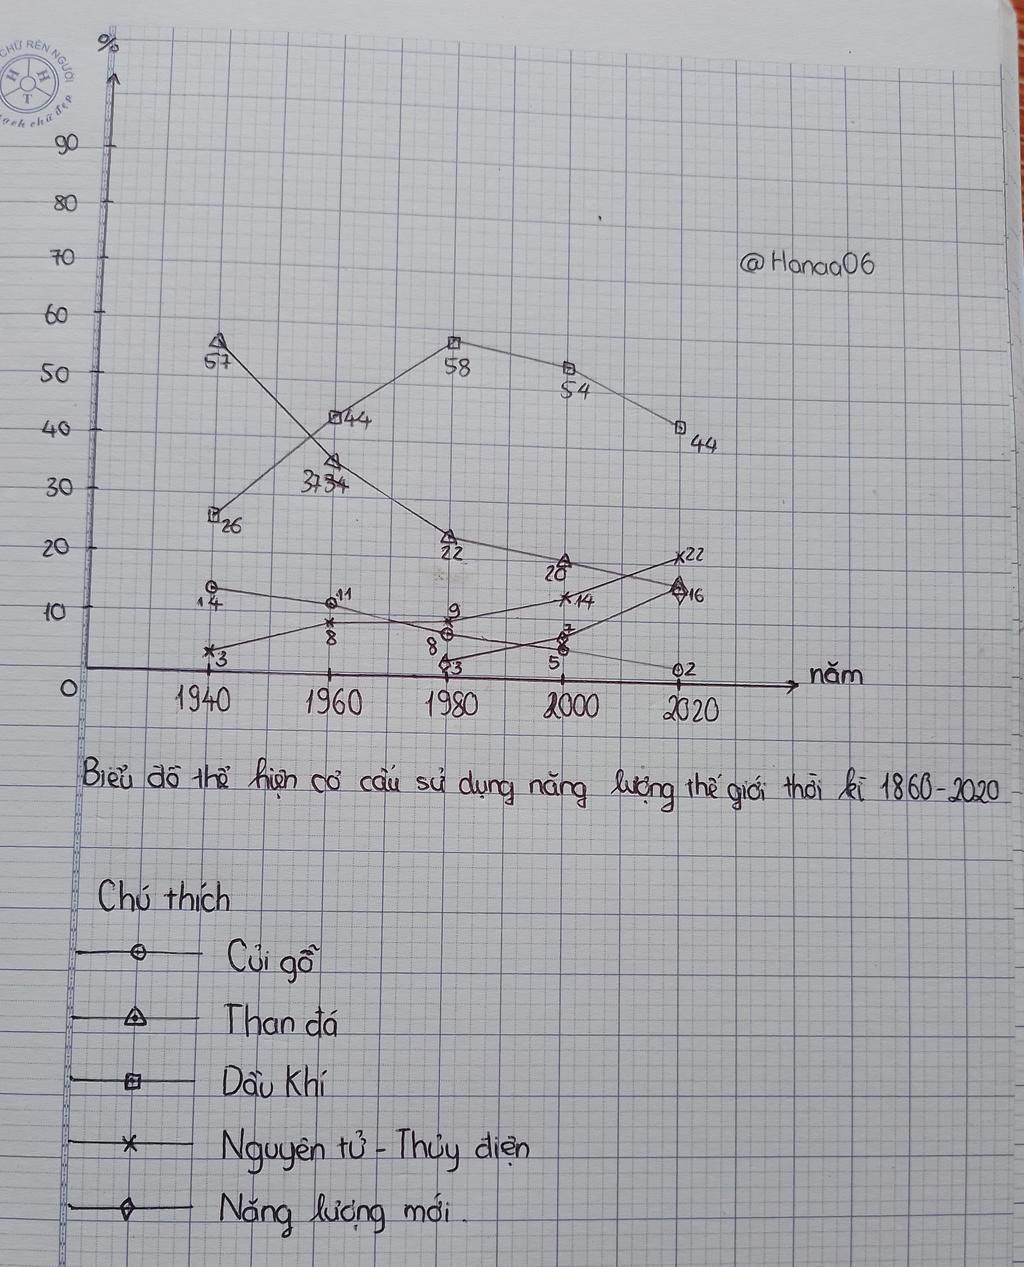 CHỮ RÈN NGƯỜI
H H
T
%
90
80
70
60
50
40
30
20
10
0
@Hanaa06
57
58
54
44
44
37 34
26
22
20
22
14
11
16
14
9
8
8
7
3
3
5
2
1940 1960 1980 2000 2020
năm
Biểu đồ thể hiện cơ cấu sử dụng năng lượng thế giới thời kì 1860-2020
Chú thích
Củi gỗ
Than đá
Dầu Khí
Nguyên tử - Thủy điện
Năng lượng mới.